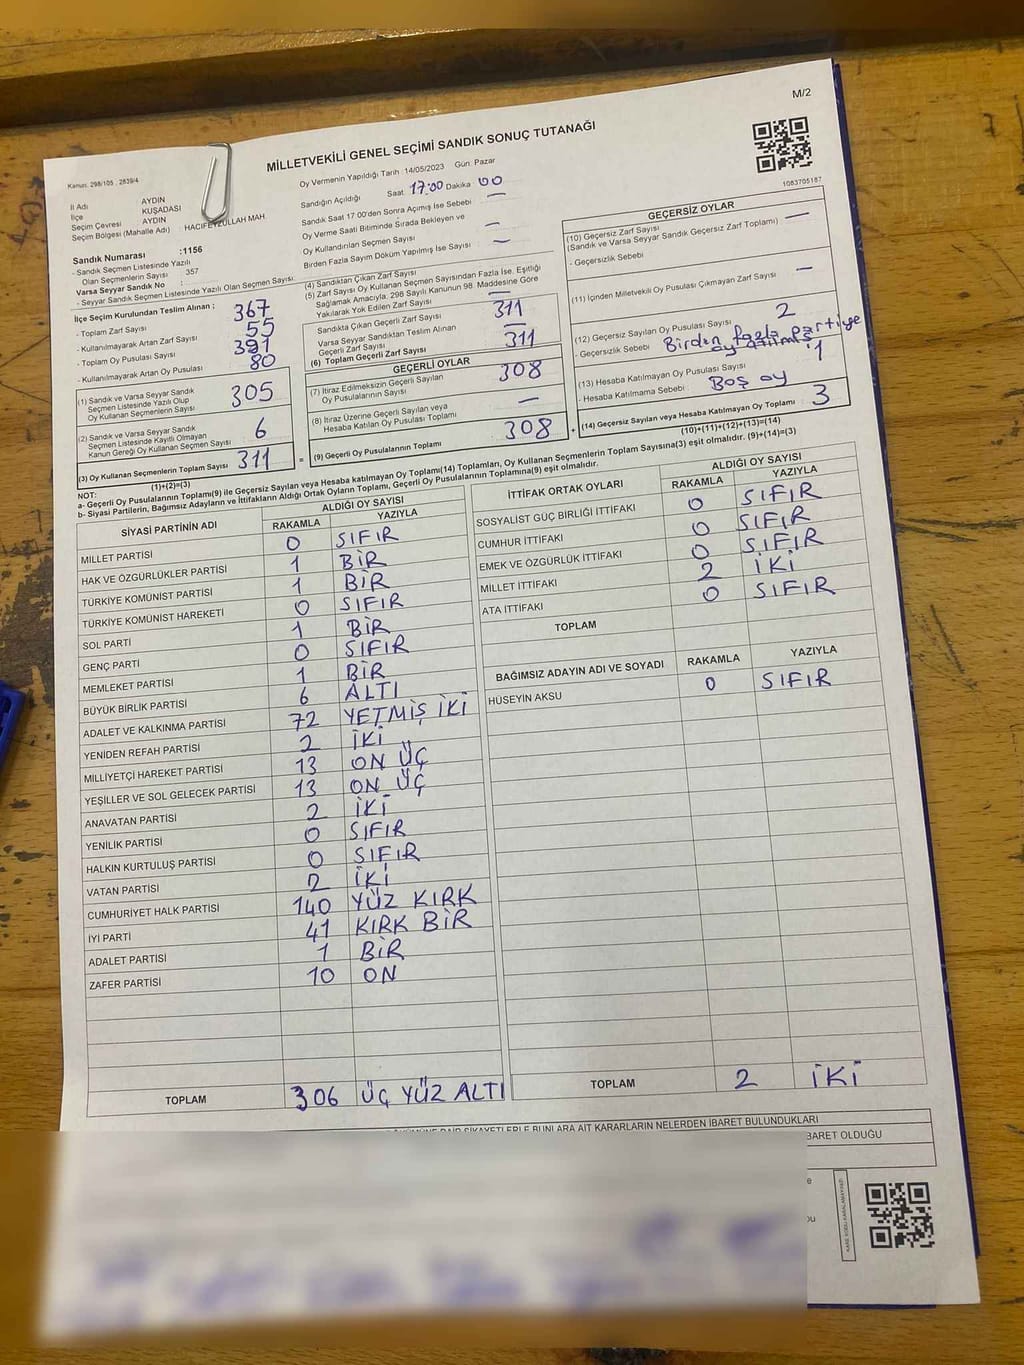 M/2
MİLLETVEKİLİ GENEL SEÇİMİ SANDIK SONUÇ TUTANAĞI
Kanun: 298/105 , 2839/4
Oy Vermenin Yapıldığı Tarih : 14/05/2023 Gün: Pazar
1083705187
İl Adı AYDIN
İlçe KUŞADASI
Seçim Çevresi AYDIN
Seçim Bölgesi (Mahalle Adı) : HACIFEYZULLAH MAH.
Sandık Numarası :1156
- Sandık Seçmen Listesinde Yazılı
Olan Seçmenlerin Sayısı : 357
Varsa Seyyar Sandık No :
- Seyyar Sandık Seçmen Listesinde Yazılı Olan Seçmen Sayısı:
Sandığın Açıldığı Saat 17:00 Dakika 00
Sandık Saat 17 00'den Sonra Açımış İse Sebebi —
Oy Verme Saati Bitiminde Sırada Bekleyen ve
Oy Kullandırılan Seçmen Sayısı —
Birden Fazla Sayım Döküm Yapılmış İse Sayısı —
İlçe Seçim Kurulundan Teslim Alınan ;
- Toplam Zarf Sayısı 367
- Kullanılmayarak Artan Zarf Sayısı 55
- Toplam Oy Pusulası Sayısı 391
- Kullanılmayarak Artan Oy Pusulası 80
(1) Sandık ve Varsa Seyyar Sandık
Seçmen Listesinde Yazılı Olup
Oy Kullanan Seçmenlerin Sayısı 305
(2) Sandık ve Varsa Seyyar Sandık
Seçmen Listesinde Kayıtlı Olmayan
Kanun Gereği Oy Kullanan Seçmen Sayısı 6
(3) Oy Kullanan Seçmenlerin Toplam Sayısı 311
(1)+(2)=(3)
(4) Sandıktan Çıkan Zarf Sayısı
(5) Zarf Sayısı Oy Kullanan Seçmen Sayısından Fazla İse, Eşitliği
Sağlamak Amacıyla, 298 Sayılı Kanunun 98. Maddesine Göre
Yakılarak Yok Edilen Zarf Sayısı —
Sandıkta Çıkan Geçerli Zarf Sayısı 311
Varsa Seyyar Sandıktan Teslim Alınan
Geçerli Zarf Sayısı —
(6) Toplam Geçerli Zarf Sayısı 311
GEÇERLİ OYLAR
(7) İtiraz Edilmeksizin Geçerli Sayılan
Oy Pusulalarının Sayısı 308
(8) İtiraz Üzerine Geçerli Sayılan veya
Hesaba Katılan Oy Pusulası Toplamı —
= (9) Geçerli Oy Pusulalarının Toplamı 308
GEÇERSİZ OYLAR
(10) Geçersiz Zarf Sayısı
(Sandık ve Varsa Seyyar Sandık Geçersiz Zarf Toplamı) —
- Geçersizlik Sebebi
(11) İçinden Milletvekili Oy Pusulası Çıkmayan Zarf Sayısı —
(12) Geçersiz Sayılan Oy Pusulası Sayısı 2
- Geçersizlik Sebebi Birden fazla partiye
oy atılmış
(13) Hesaba Katılmayan Oy Pusulası Sayısı 1
- Hesaba Katılmama Sebebi : Boş oy
+ (14) Geçersiz Sayılan veya Hesaba Katılmayan Oy Toplamı 3
(10)+(11)+(12)+(13)=(14)
NOT:
a- Geçerli Oy Pusulalarının Toplamı(9) ile Geçersiz Sayılan veya Hesaba katılmayan Oy Toplamı(14) Toplamları, Oy Kullanan Seçmenlerin Toplam Sayısına(3) eşit olmalıdır. (9)+(14)=(3)
b- Siyasi Partilerin, Bağımsız Adayların ve İttifakların Aldığı Ortak Oyların Toplamı, Geçerli Oy Pusulalarının Toplamına(9) eşit olmalıdır.
SİYASİ PARTİNİN ADI ALDIĞI OY SAYISI
RAKAMLA YAZIYLA
MİLLET PARTİSİ 0 SIFIR
HAK VE ÖZGÜRLÜKLER PARTİSİ 1 BİR
TÜRKİYE KOMÜNİST PARTİSİ 1 BİR
TÜRKİYE KOMÜNİST HAREKETİ 0 SIFIR
SOL PARTİ 1 BİR
GENÇ PARTİ 0 SIFIR
MEMLEKET PARTİSİ 1 BİR
BÜYÜK BİRLİK PARTİSİ 6 ALTI
ADALET VE KALKINMA PARTİSİ 72 YETMİŞ İKİ
YENİDEN REFAH PARTİSİ 2 İKİ
MİLLİYETÇİ HAREKET PARTİSİ 13 ON ÜÇ
YEŞİLLER VE SOL GELECEK PARTİSİ 13 ON ÜÇ
ANAVATAN PARTİSİ 2 İKİ
YENİLİK PARTİSİ 0 SIFIR
HALKIN KURTULUŞ PARTİSİ 0 SIFIR
VATAN PARTİSİ 2 İKİ
CUMHURİYET HALK PARTİSİ 140 YÜZ KIRK
İYİ PARTİ 41 KIRK BİR
ADALET PARTİSİ 1 BİR
ZAFER PARTİSİ 10 ON
TOPLAM 306 ÜÇ YÜZ ALTI
İTTİFAK ORTAK OYLARI ALDIĞI OY SAYISI
RAKAMLA YAZIYLA
SOSYALİST GÜÇ BİRLİĞİ İTTİFAKI 0 SIFIR
CUMHUR İTTİFAKI 0 SIFIR
EMEK VE ÖZGÜRLÜK İTTİFAKI 0 SIFIR
MİLLET İTTİFAKI 2 İKİ
ATA İTTİFAKI 0 SIFIR
TOPLAM
BAĞIMSIZ ADAYIN ADI VE SOYADI RAKAMLA YAZIYLA
HÜSEYİN AKSU 0 SIFIR
TOPLAM 2 İKİ
DAİR ŞİKAYETLERLE BUNLARA AİT KARARLARIN NELERDEN İBARET BULUNDUKLARI
BARET OLDUĞU